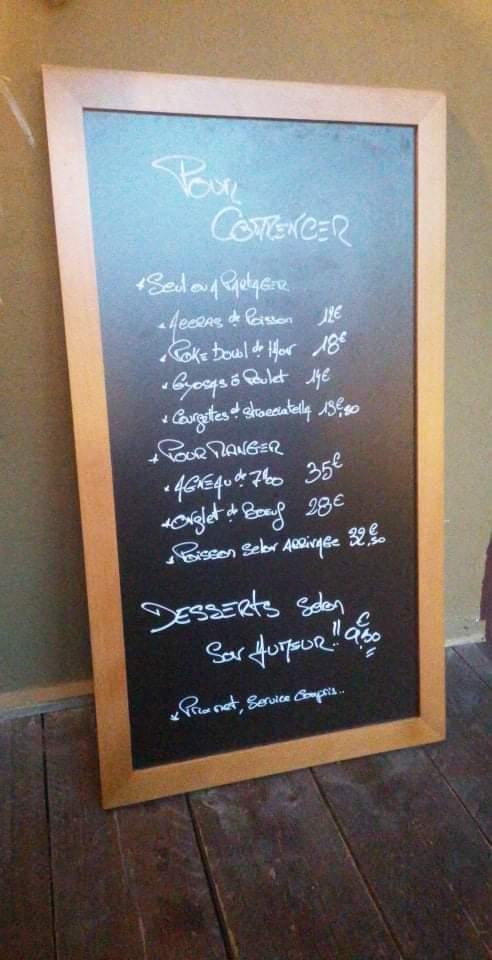 Pour
Commencer
* Seul ou a Partager
* Accras de Poisson 12€
* Poke Bowl de Mar 18€
* Gyosas ô Poulet 14€
* Courgettes & Stracciatella 13€,50
* Pour Manger
* Agneau de 7h00 35€
* Onglet de Boeuf 28€
* Poisson selon Arrivage 32€,50
Desserts selon
Son Auteur..!! 9€,50
* Prix net, Service Compris..